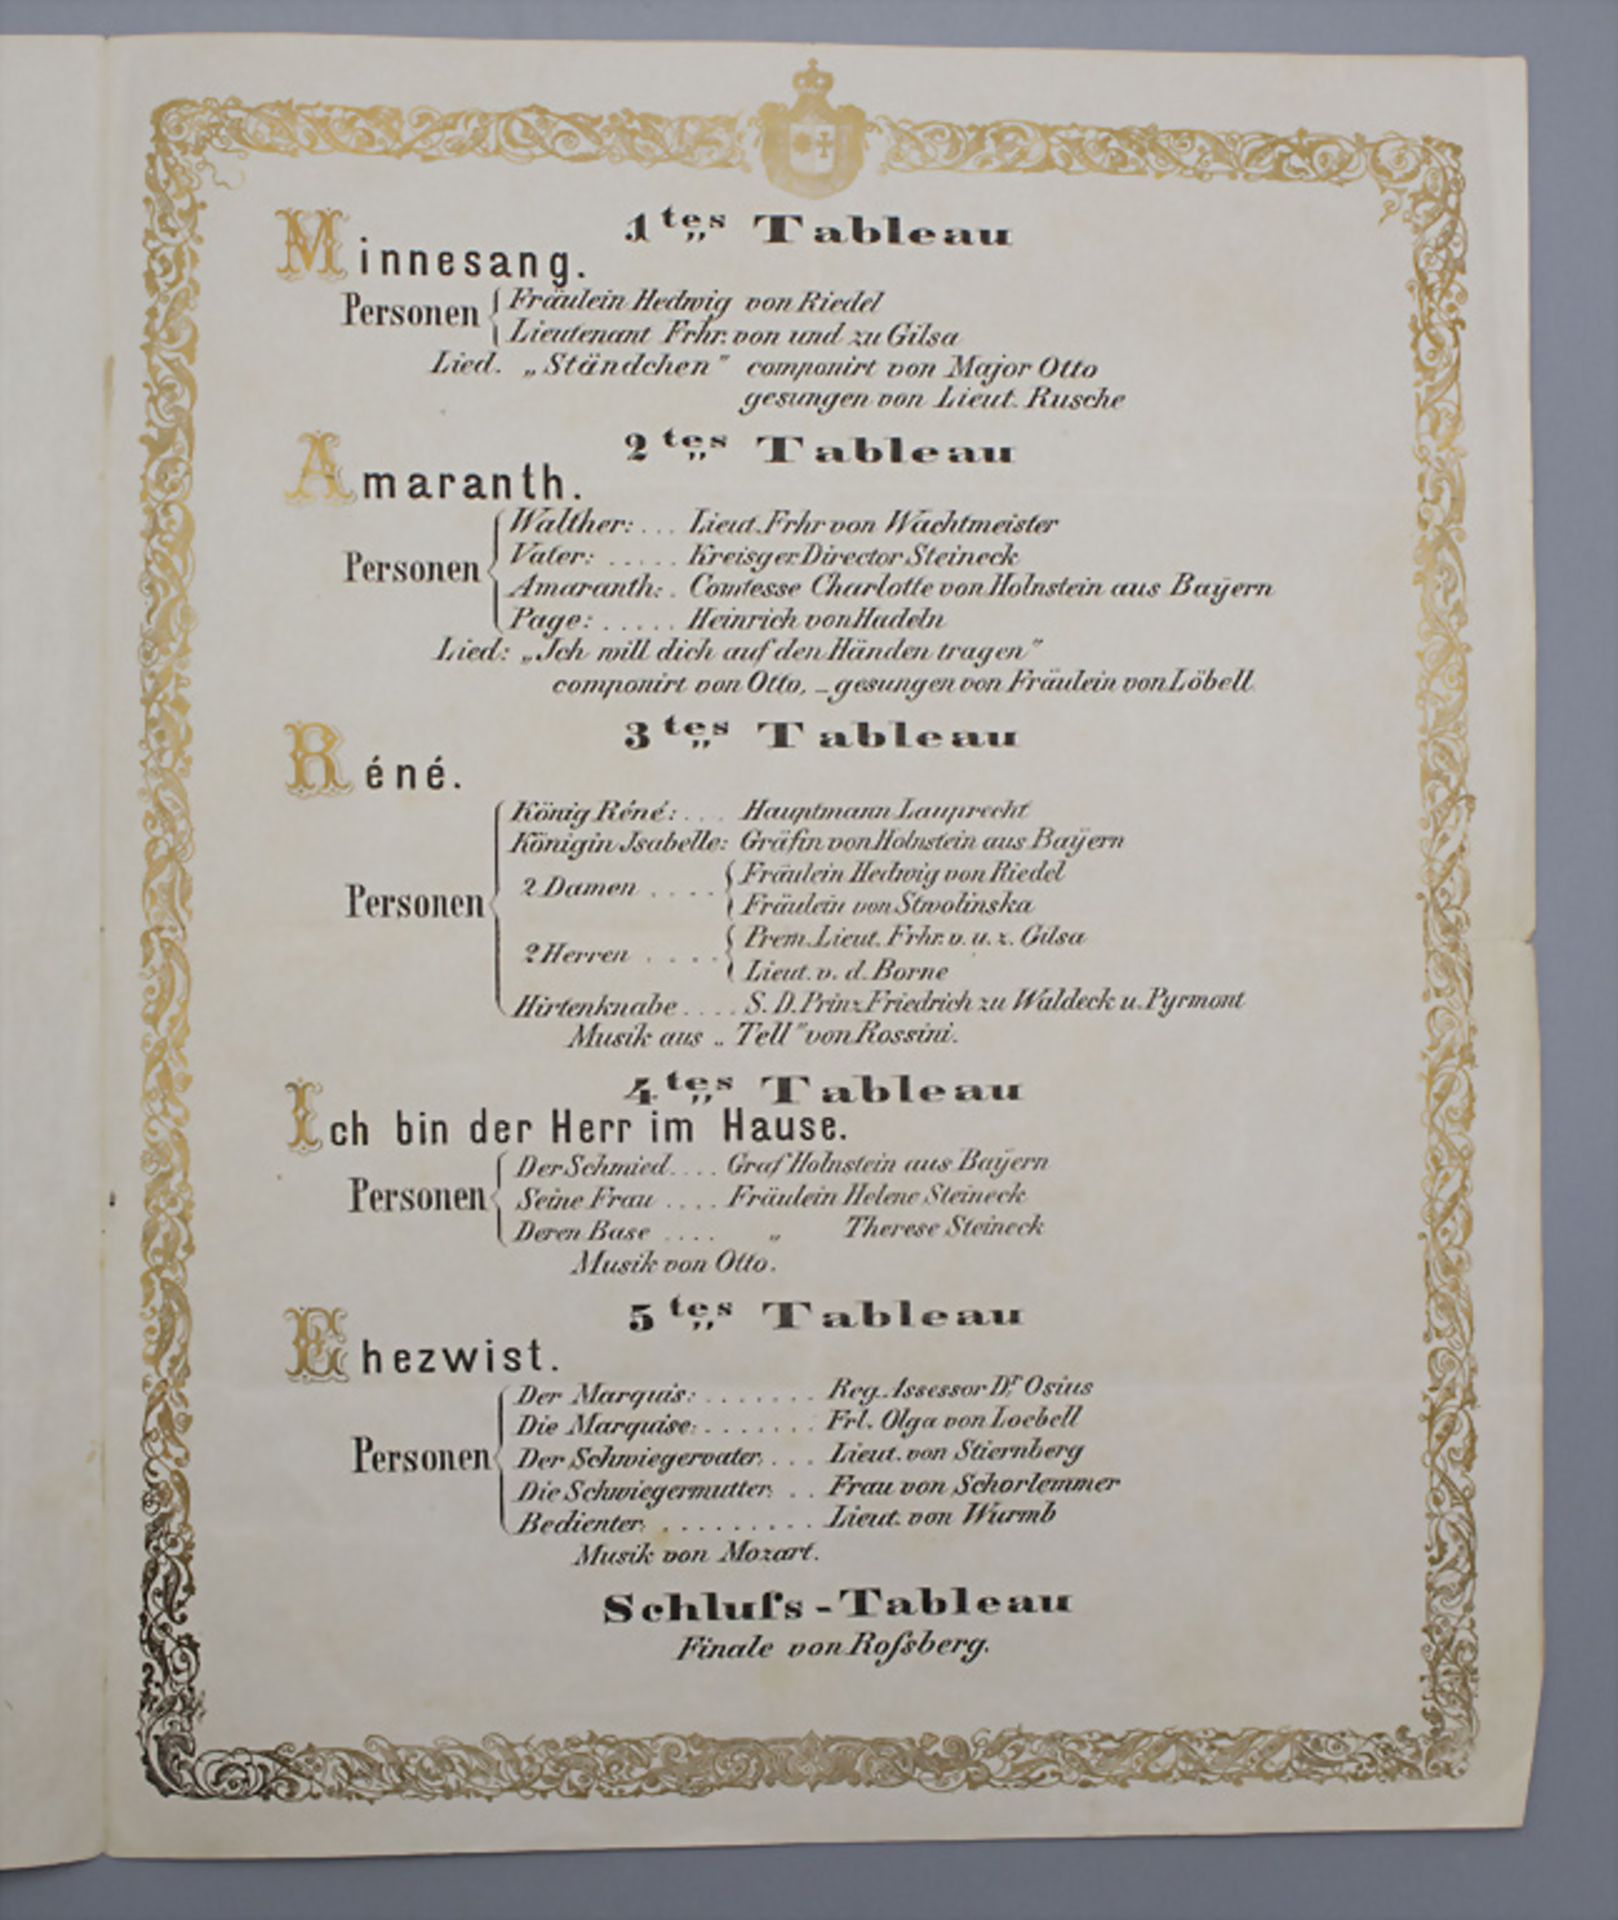 1tes Tableau
Minnesang.
Personen
Fräulein Hedwig von Riedel
Lieutenant Frhr. von und zu Gilsa
Lied. „Ständchen” componirt von Major Otto
gesungen von Lieut. Rusche
2tes Tableau
Amaranth.
Personen
Walther: ... Lieut. Frhr von Wachtmeister
Vater: ..... Kreisger. Director Steineck
Amaranth: . Comtesse Charlotte von Holnstein aus Bayern
Page: ..... Heinrich von Hadeln
Lied: „Ich will dich auf den Händen tragen”
componirt von Otto, – gesungen von Fräulein von Löbell
3tes Tableau
Réné.
Personen
König Réné: ... Hauptmann Lauprecht
Königin Isabelle: Gräfin von Holnstein aus Bayern
2 Damen .... Fräulein Hedwig von Riedel
Fräulein von Stwolinska
2 Herren .... Prem. Lieut. Frhr. v. u. z. Gilsa
Lieut. v. d. Borne
Hirtenknabe .... S. D. Prinz Friedrich zu Waldeck u. Pyrmont
Musik aus „Tell” von Rossini.
4tes Tableau
Ich bin der Herr im Hause.
Personen
Der Schmied .... Graf Holnstein aus Bayern
Seine Frau .... Fräulein Helene Steineck
Deren Base .... „ Therese Steineck
Musik von Otto.
5tes Tableau
Ehezwist.
Personen
Der Marquis: ....... Reg. Assessor Dr. Osius
Die Marquise: ....... Frl. Olga von Loebell
Der Schwiegervater: ... Lieut. von Stiernberg
Die Schwiegermutter: .. Frau von Schorlemmer
Bedienter: .......... Lieut. von Wurmb
Musik von Mozart.
Schluſs-Tableau
Finale von Roſsberg.